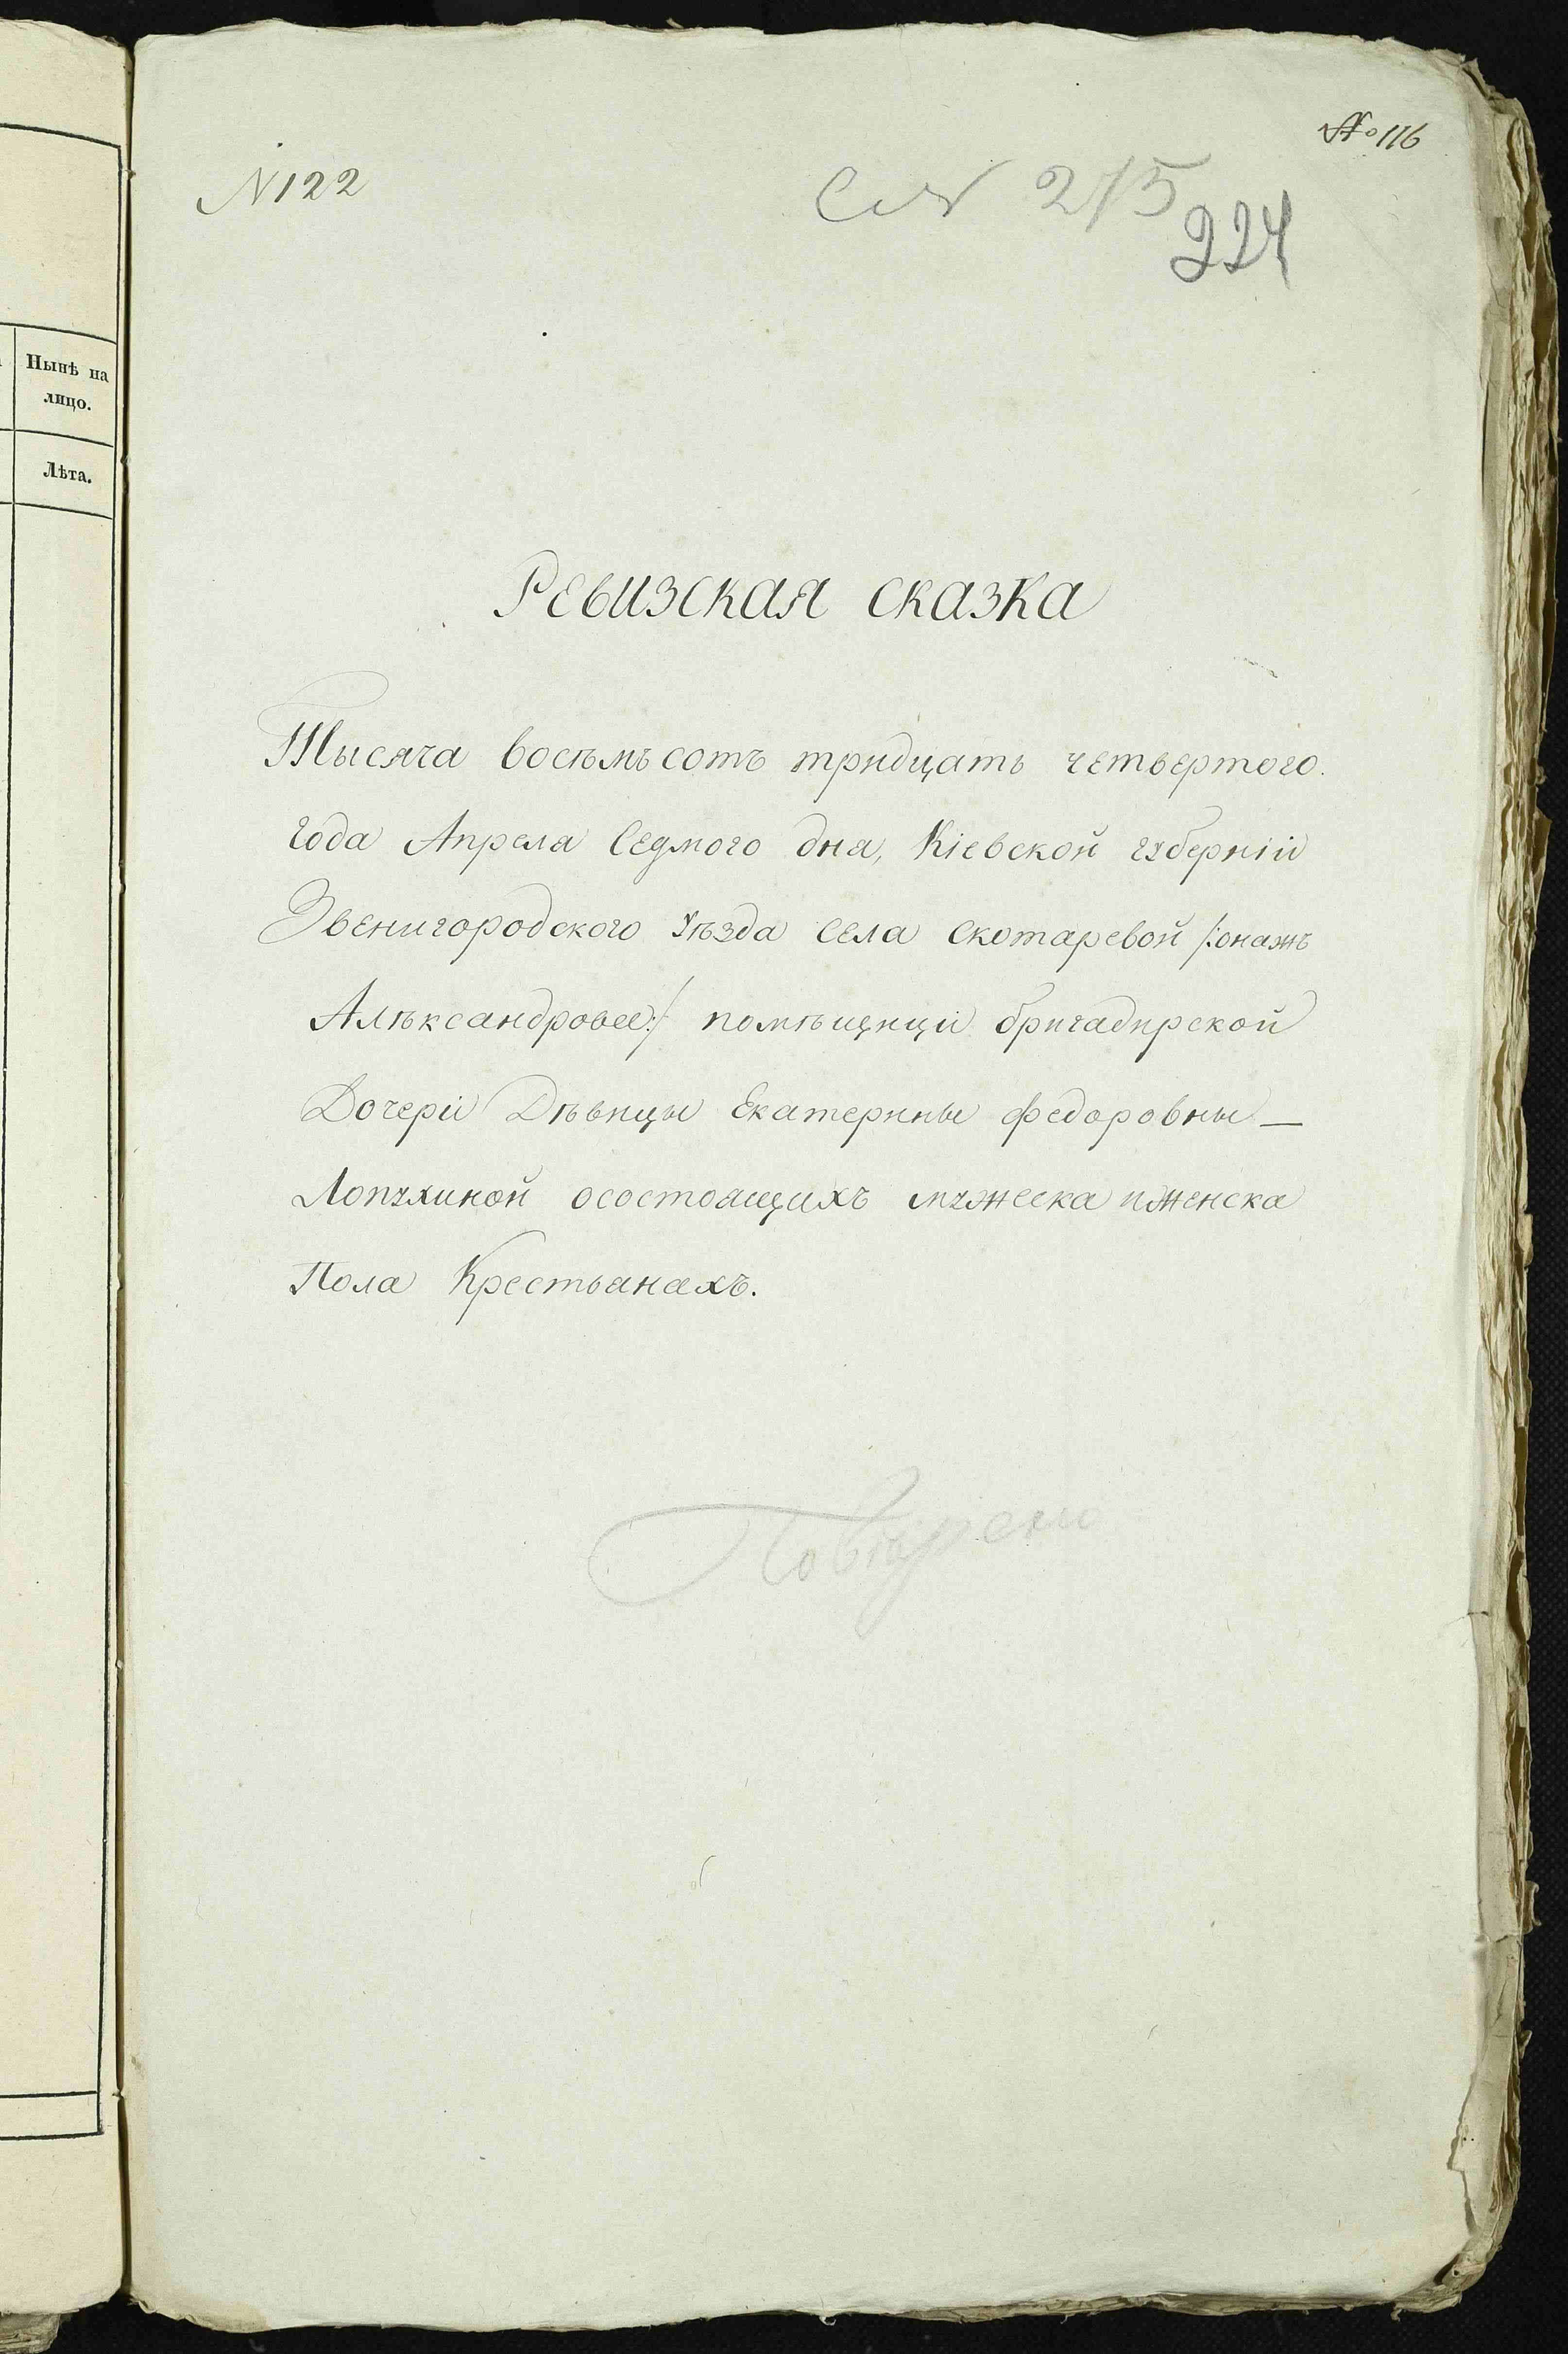 Нынѣ на
лицо.
Лѣта.
№ 116
N 122
275
224
Ревизская сказка
Тысяча восѣмьсотъ тридцать четвертого
года Апреля Седмого дня, Кіевской губерніи
Звенигородского Уѣзда Села Скотаревой /:онажъ
Алѣксандровка:/ помѣщици бригадирской
Дочери Дѣвицы Екатерины Федоровны —
Лопухиной осостоящихъ мужеска иженска
Пола Крестьянахъ.
Повѣрено